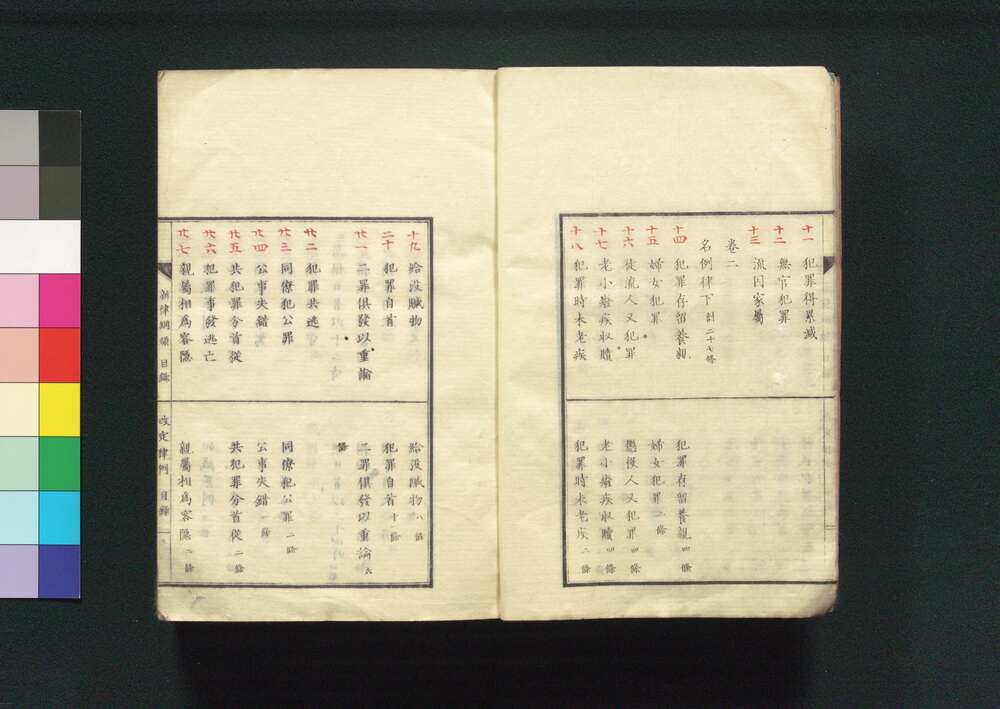 十一 犯罪得累減
十二 無官犯罪
十三 流囚家屬
卷二
名例律下 計二十七條
十四 犯罪存留養親
十五 婦女犯罪
十六 徒流人又犯罪
十七 老小癈疾收贖
十八 犯罪時未老疾
犯罪存留養親 四條
婦女犯罪 二條
懲役人又犯罪 四條
老小癈疾收贖 四條
犯罪時未老疾 二條
十九 給沒贓物
二十 犯罪自首
廿一 二罪俱發以重論
廿二 犯罪共逃
廿三 同僚犯公罪
廿四 公事失錯
廿五 共犯罪分首從
廿六 犯罪事發逃亡
廿七 親屬相爲容隱
給沒贓物 八條
犯罪自首 十條
二罪俱發以重論 六
條
同僚犯公罪 二條
公事失錯 一條
共犯罪分首從 二條
親屬相爲容隱 二條
新律綱領 目錄
改定律例 目錄